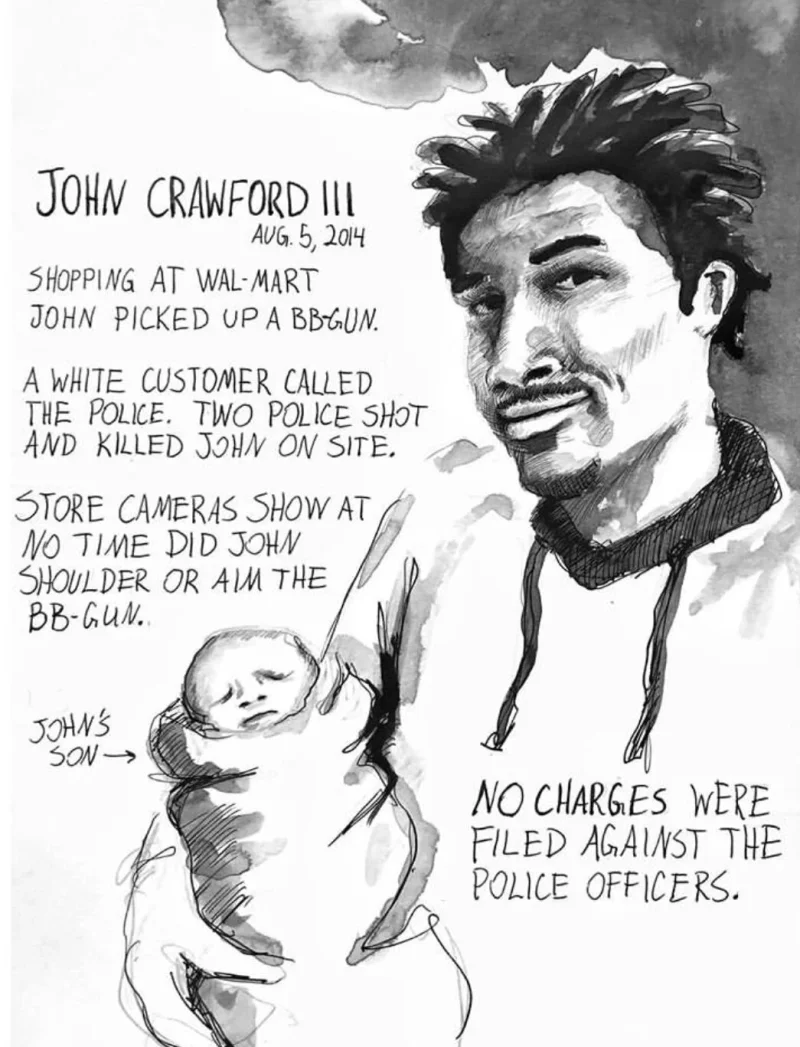 JOHN CRAWFORD III
AUG. 5, 2014
SHOPPING AT WAL-MART
JOHN PICKED UP A BB-GUN.
A WHITE CUSTOMER CALLED
THE POLICE. TWO POLICE SHOT
AND KILLED JOHN ON SITE.
STORE CAMERAS SHOW AT
NO TIME DID JOHN
SHOULDER OR AIM THE
BB-GUN.
JOHN'S
SON →
NO CHARGES WERE
FILED AGAINST THE
POLICE OFFICERS.